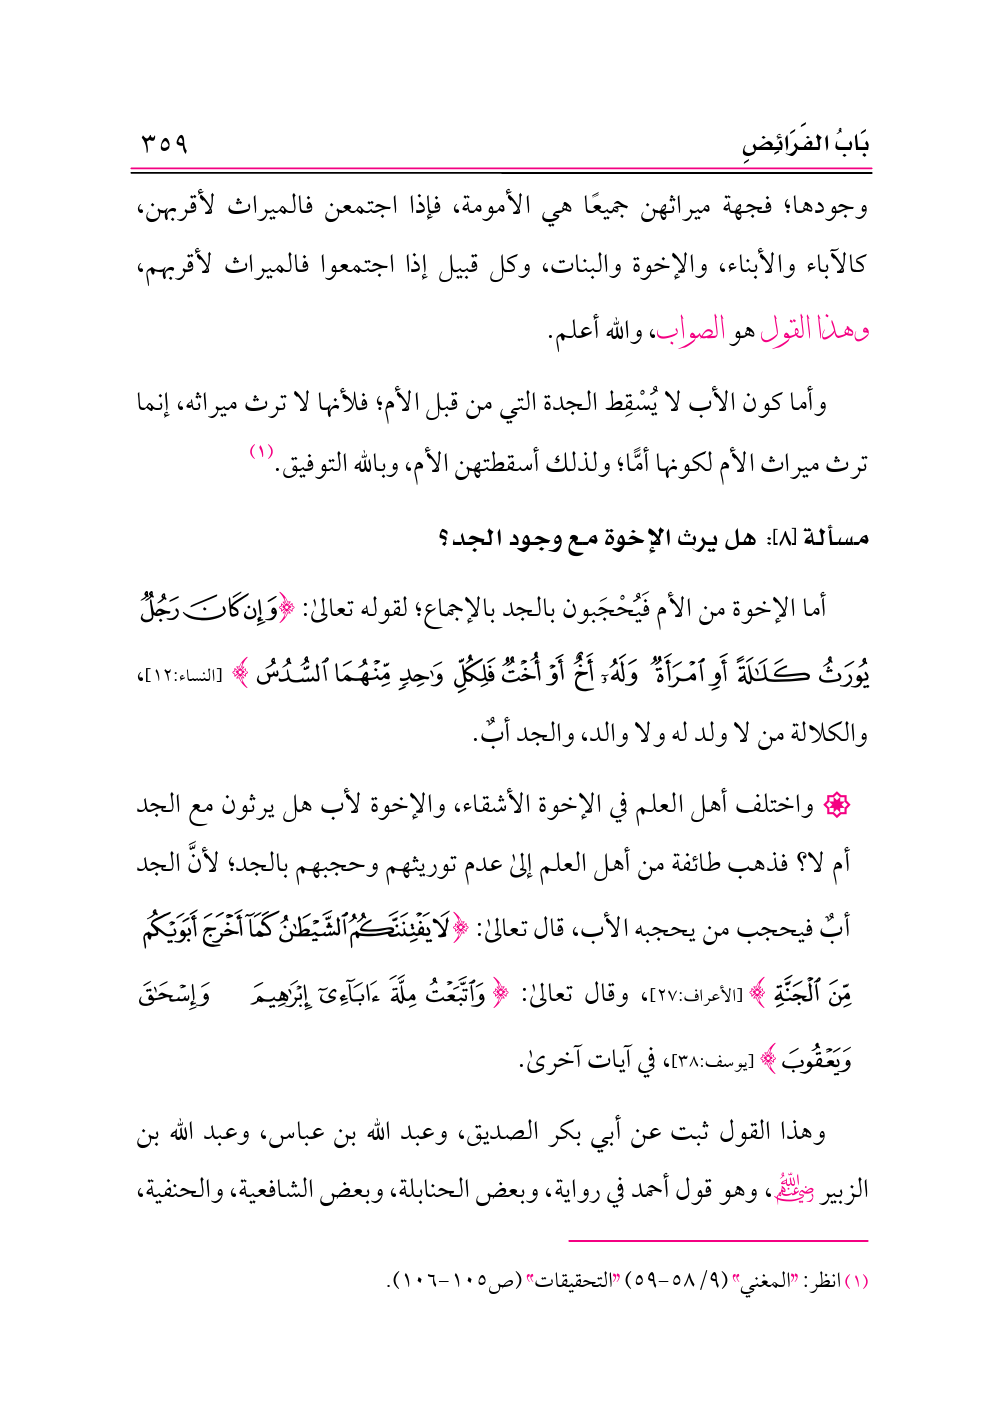 بَابُ الفَرَائِضِ ٣٥٩
وجودها؛ فجهة ميراثهن جميعًا هي الأمومة، فإذا اجتمعن فالميراث لأقربهن،
كالآباء والأبناء، والإخوة والبنات، وكل قبيل إذا اجتمعوا فالميراث لأقربهم،
وهذا القول هو الصواب، والله أعلم.
وأما كون الأب لا يُسْقِط الجدة التي من قبل الأم؛ فلأنها لا ترث ميراثه، إنما
ترث ميراث الأم لكونها أمًّا؛ ولذلك أسقطتهن الأم، وبالله التوفيق.(١)
مسألة [٨]: هل يرث الإخوة مع وجود الجد؟
أما الإخوة من الأم فَيُحْجَبون بالجد بالإجماع؛ لقوله تعالىٰ: ﴿وَإِن كَانَ رَجُلٌ
يُورَثُ كَلَٰلَةً أَوِ ٱمْرَأَةٌ وَلَهُۥٓ أَخٌ أَوْ أُخْتٌ فَلِكُلِّ وَٰحِدٍ مِّنْهُمَا ٱلسُّدُسُ﴾ [النساء:١٢]،
والكلالة من لا ولد له ولا والد، والجد أبٌ.
۞ واختلف أهل العلم في الإخوة الأشقاء، والإخوة لأب هل يرثون مع الجد
أم لا؟ فذهب طائفة من أهل العلم إلىٰ عدم توريثهم وحجبهم بالجد؛ لأنَّ الجد
أبٌ فيحجب من يحجبه الأب، قال تعالىٰ: ﴿لَا يَفْتِنَنَّكُمُ ٱلشَّيْطَٰنُ كَمَآ أَخْرَجَ أَبَوَيْكُم
مِّنَ ٱلْجَنَّةِ﴾ [الأعراف:٢٧]، وقال تعالىٰ: ﴿وَٱتَّبَعْتُ مِلَّةَ ءَابَآءِىٓ إِبْرَٰهِيمَ وَإِسْحَٰقَ
وَيَعْقُوبَ﴾ [يوسف:٣٨]، في آيات آخرىٰ.
وهذا القول ثبت عن أبي بكر الصديق، وعبد الله بن عباس، وعبد الله بن
الزبير رضي الله عنهم، وهو قول أحمد في رواية، وبعض الحنابلة، وبعض الشافعية، والحنفية،
(١) انظر: "المغني" (٩/ ٥٨-٥٩) "التحقيقات" (ص١٠٥-١٠٦).